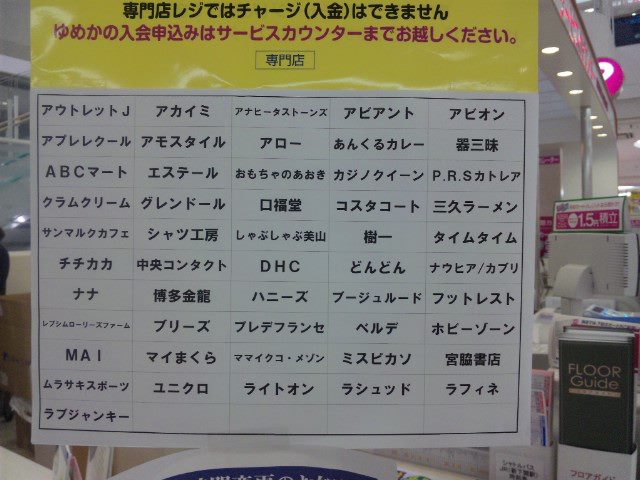 専門店レジではチャージ(入金)はできません
ゆめかの入会申込みはサービスカウンターまでお越しください。
専門店
アウトレットJ アカイミ アナヒータストーンズ アビアント アビオン
アプレレクール アモスタイル アロー あんくるカレー 器三昧
ABCマート エステール おもちゃのあおき カジノクイーン P.R.Sカトレア
クラムクリーム グレンドール 口福堂 コスタコート 三久ラーメン
サンマルクカフェ シャツ工房 しゃぶしゃぶ美山 樹一 タイムタイム
チチカカ 中央コンタクト DHC どんどん ナウヒア/カプリ
ナナ 博多金龍 ハニーズ ブージュルード フットレスト
レプシムローリーズファーム ブリーズ プレデフランセ ベルデ ホビーゾーン
MAI マイまくら ママイクコ・メゾン ミスピカソ 宮脇書店
ムラサキスポーツ ユニクロ ライトオン ラシュッド ラフィネ
ラブジャンキー
1.5%積立
FLOOR
Guide
フロアガイド